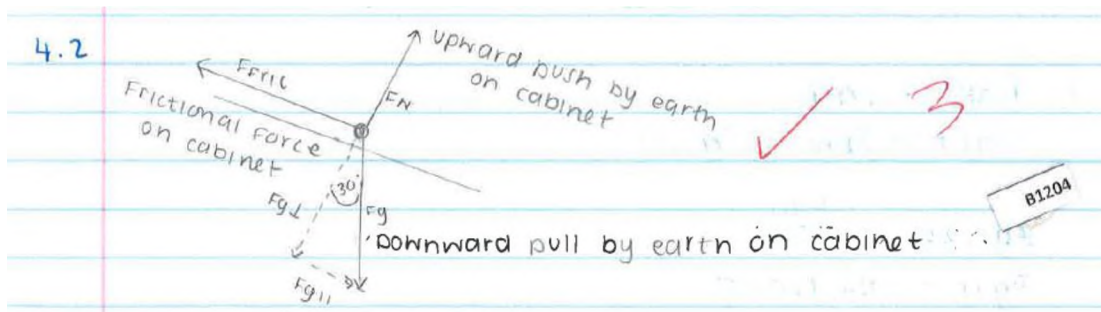 4.2
FFric
Frictional Force
on cabinet
FN
upward push by earth
on cabinet
3
B1204
30°
Fg⊥
Fg
Downward pull by earth on cabinet
Fg11